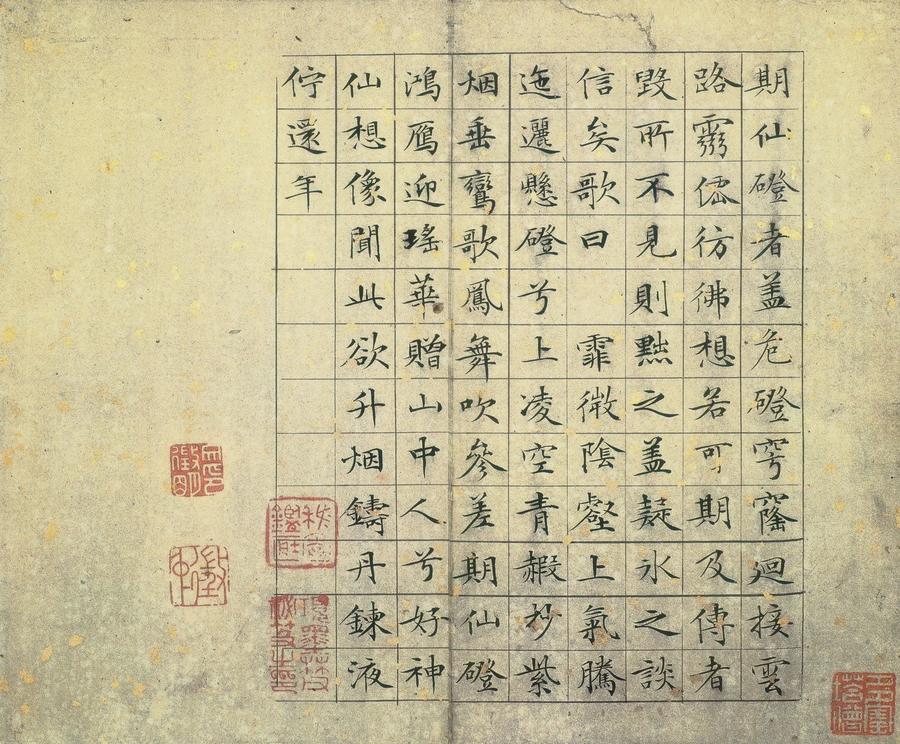 期仙磴者盖危磴穹窿迴接雲
路靈僊彷彿想若可期及傳者
毀所不見則黜之盖疑氷之談
信矣歌曰 霏微陰壑上氣騰
迤邐懸磴兮上凌空青霞杪紫
烟垂鸞歌鳳舞吹參差期仙磴
鴻鴈迎瑤華贈山中人兮好神
仙想像聞此欲升烟鑄丹鍊液
佇還年